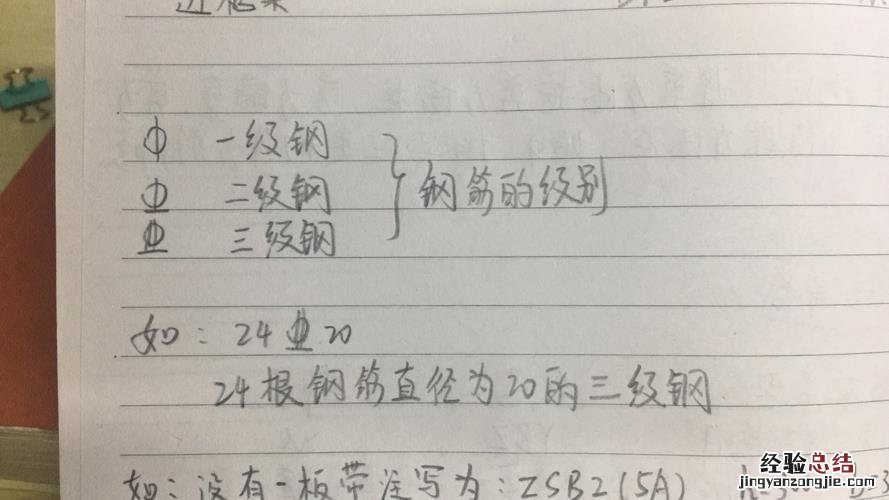 边框梁
Φ 一级钢
Φ 二级钢
Φ 三级钢
钢筋的级别
如：24Φ20
24根钢筋直径为20的三级钢
如：没有一板带注写为：ZSB2(5A)
经验总结
jingyanzongjie.com